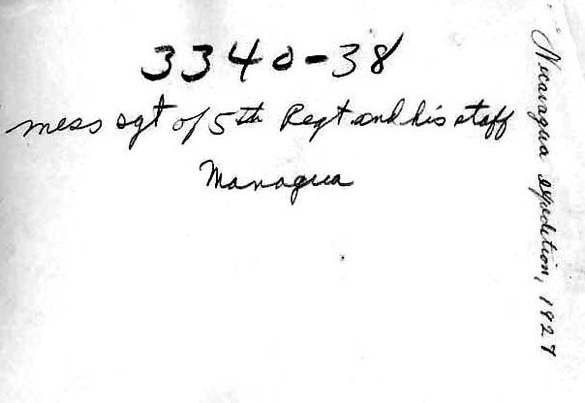 3340-38
mess sgt of 5th Regt and his staff
Managua
Nicaragua expedition, 1927